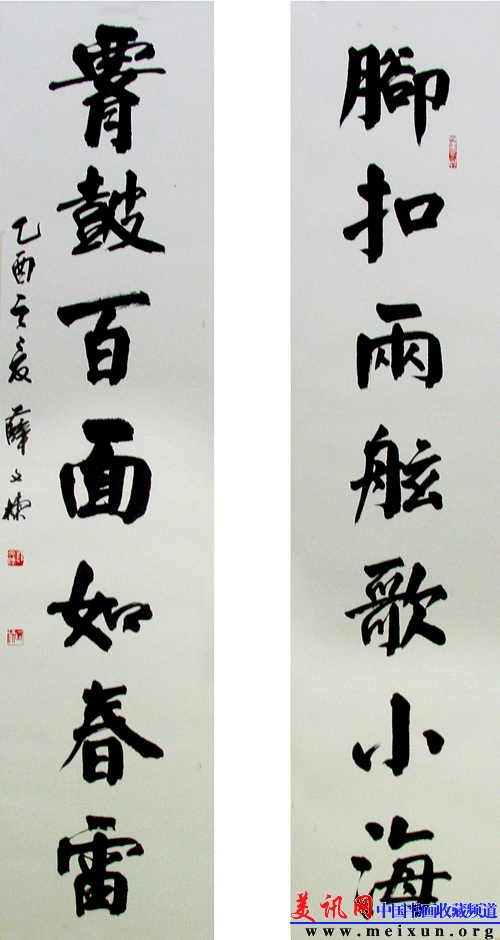 腳扣兩舷歌小海
鼓百面如春雷
乙酉之夏 薛文
美讯网 中国书画收藏频道
www.meixun.org